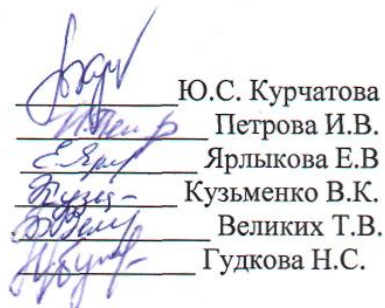 Ю.С. Курчатова
Петрова И.В.
Ярлыкова Е.В
Кузьменко В.К.
Великих Т.В.
Гудкова Н.С.